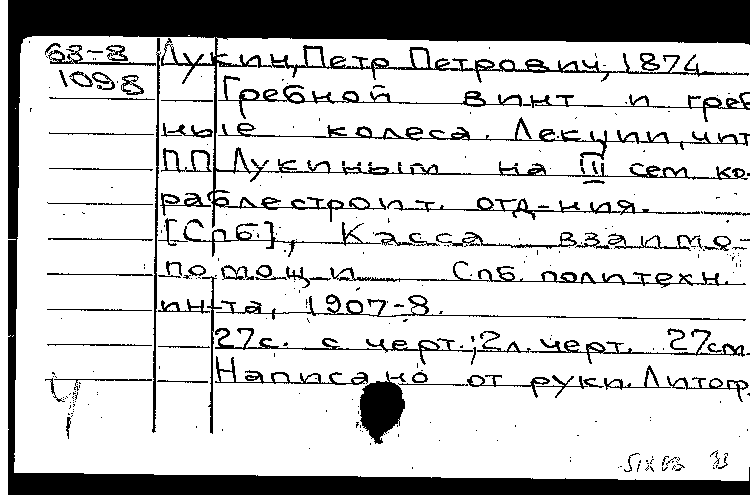 63-8 Лукин, Петр Петрович, 1874
1098 Гребной винт и греб
ные колеса. Лекции, чит
П.П. Лукиным на III сем. ко-
раблестроит. отд-ния.
[Спб.], Касса взаимо-
помощи Спб. политехн.
ин-та, 1907-8.
27с. с черт.; 2л. черт. 27см.
Написано от руки. Литогр.